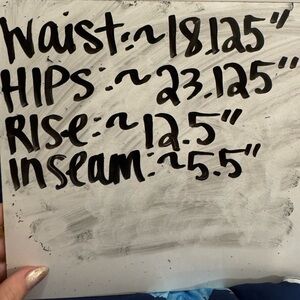 Waist:~18.125"
HIPS:~23.125"
RISe:~12.5"
inseam:~5.5"